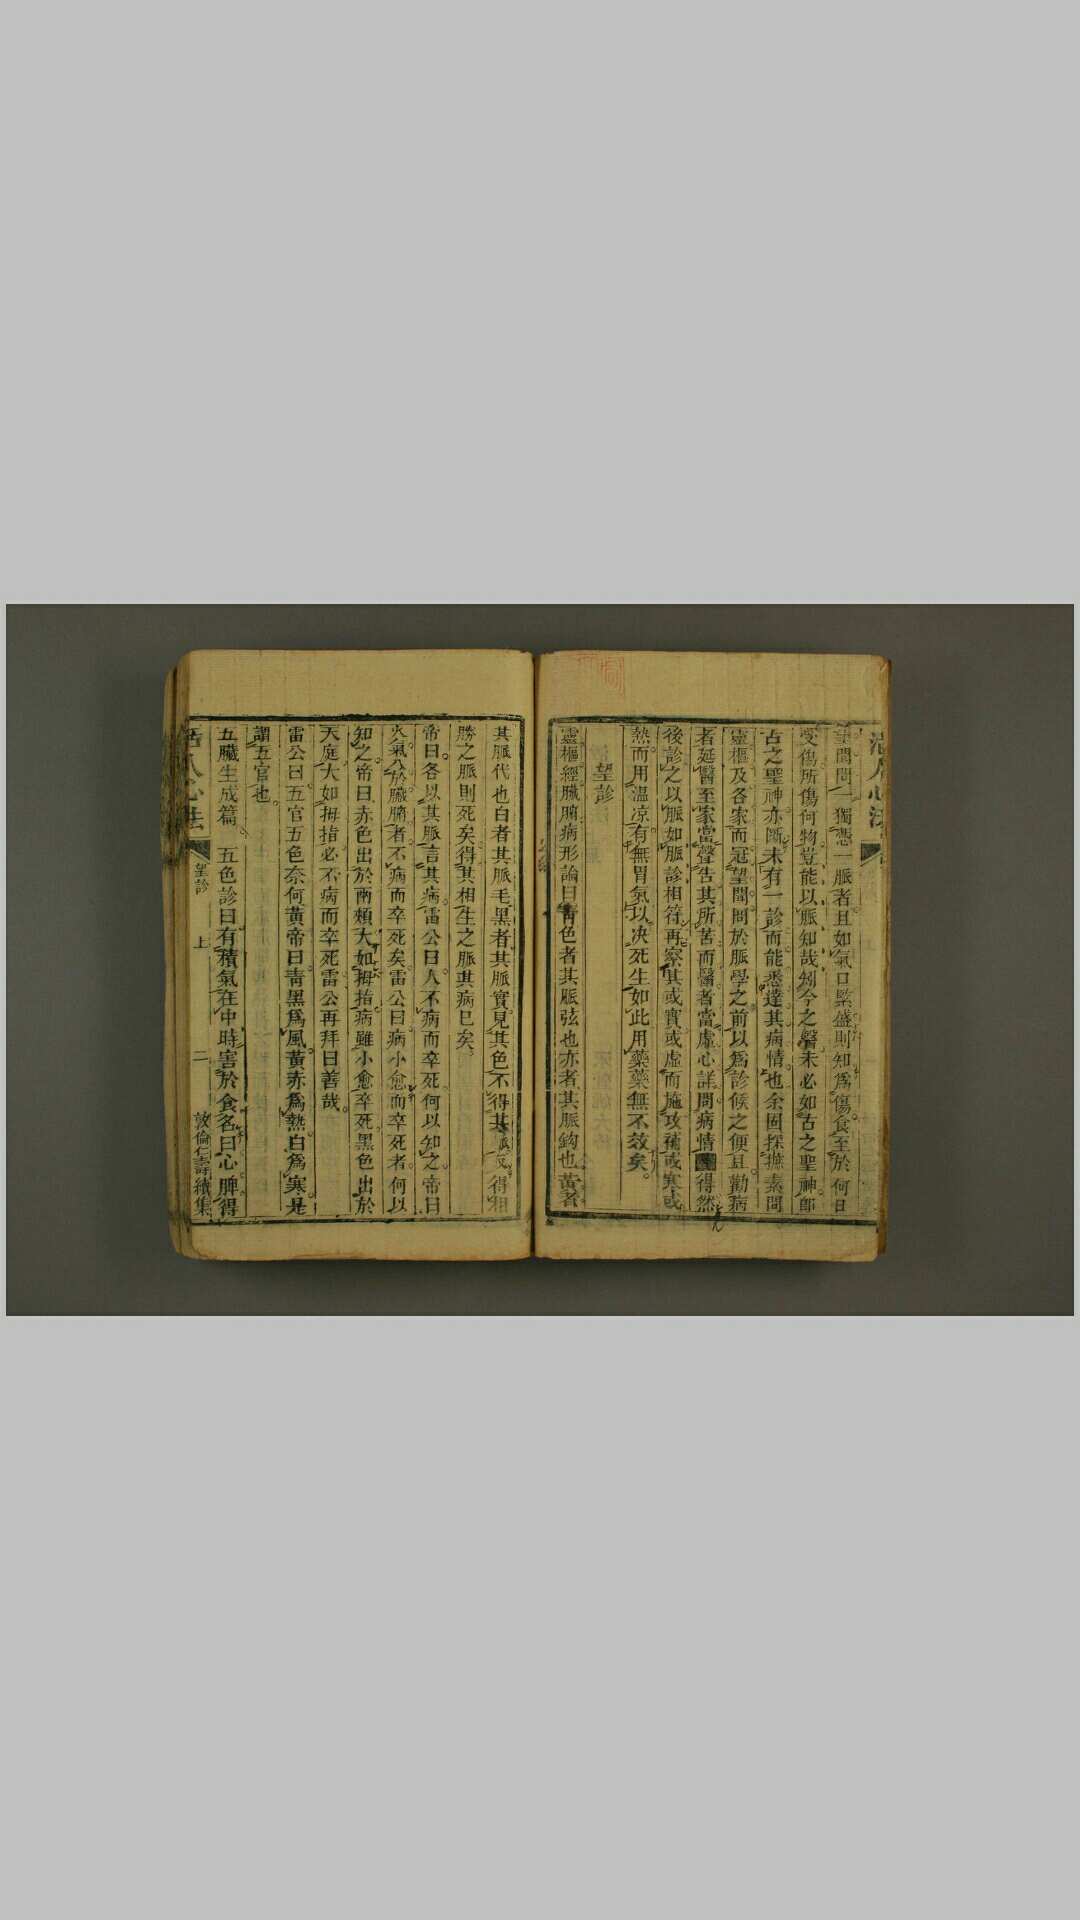 望聞問一獨憑一脈者且如氣口緊盛則知爲傷食至於何日
受傷所傷何物豈能以脈知哉矧今之醫未必如古之聖神卽
古之聖神亦斷未有一診而能悉達其病情也余因採摭素問
靈樞及各家而冠望聞問於脈學之前以爲診候之便且勸病
者延醫至家當聲告其所苦而醫者當虛心詳問病情 得然
後診之以脈如脈診相符再察其或實或虛而施攻補或寒或
熱而用溫涼有無胃氣以決死生如此用藥藥無不效矣
望診
靈樞經臟腑病形論曰青色者其脈弦也赤者其脈鈎也黃者
其脈代也白者其脈毛黑者其脈實見其色不得其脈反得相
勝之脈則死矣得其相生之脈其病已矣
帝曰各以其脈言其病雷公曰人不病而卒死何以知之帝曰
大氣入於臟腑者不病而卒死矣雷公曰病小愈而卒死者何以
知之帝曰赤色出於兩頰大如拇指病雖小愈卒死黑色出於
天庭大如拇指必不病而卒死雷公再拜曰善哉
雷公曰五官五色奈何黃帝曰青黑爲風黃赤爲熱白爲寒是
謂五官也
五臟生成篇 五色診曰有積氣在中時害於食名曰心脾得
活人心法 望診 上 二 敦倫仁壽續集